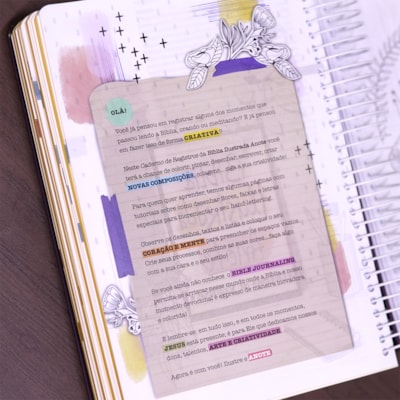 OLÁ!
Você já pensou em registrar alguns dos momentos que
passou lendo a Bíblia, orando ou meditando? E já pensou
em fazer isso de forma CRIATIVA?
Neste Caderno de Registros da Bíblia Ilustrada Anote você
terá a chance de colorir, pintar, desenhar, escrever, criar
NOVAS COMPOSIÇÕES, colagens... siga a sua criatividade!
Para quem quer aprender, temos algumas páginas com
tutoriais sobre como desenhar flores, faixas e letras
especiais para incrementar o seu hand-lettering.
Observe os desenhos, textos e listas e coloque o seu
CORAÇÃO E MENTE para preencher os espaços vazios.
Crie seus processos, combine as suas cores... faça algo
com a sua cara e o seu estilo!
Se você ainda não conhece o BIBLE JOURNALING,
permita-se arriscar nesse mundo onde a Bíblia e nosso
momento devocional é expresso de maneira literária
e colorida!
E lembre-se: em tudo isso, e em todos os momentos,
JESUS está presente, é para Ele que dedicamos nossos
dons, talentos, ARTE E CRIATIVIDADE.
Agora é com você! Ilustre e ANOTE.